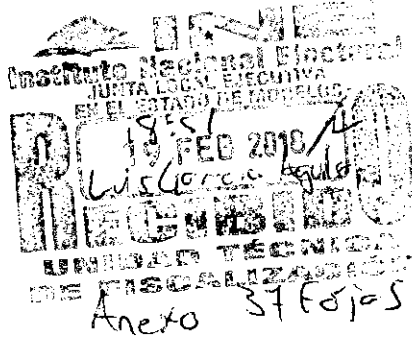 INE
Instituto Nacional Electoral
JUNTA LOCAL EJECUTIVA
EN EL ESTADO DE MORELOS
18:51
FEB 2018
Luis
RECIBIDO
UNIDAD TÉCNICA
DE FISCALIZACIÓN
Anexo 37 fojas